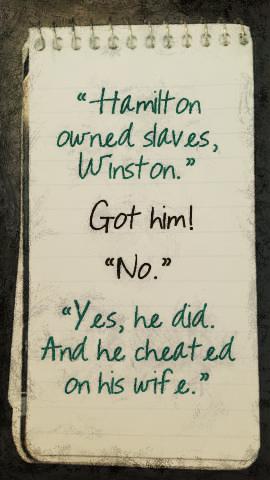 “Hamilton
owned slaves,
Winston.”
Got him!
“No.”
“Yes, he did.
And he cheated
on his wife.”